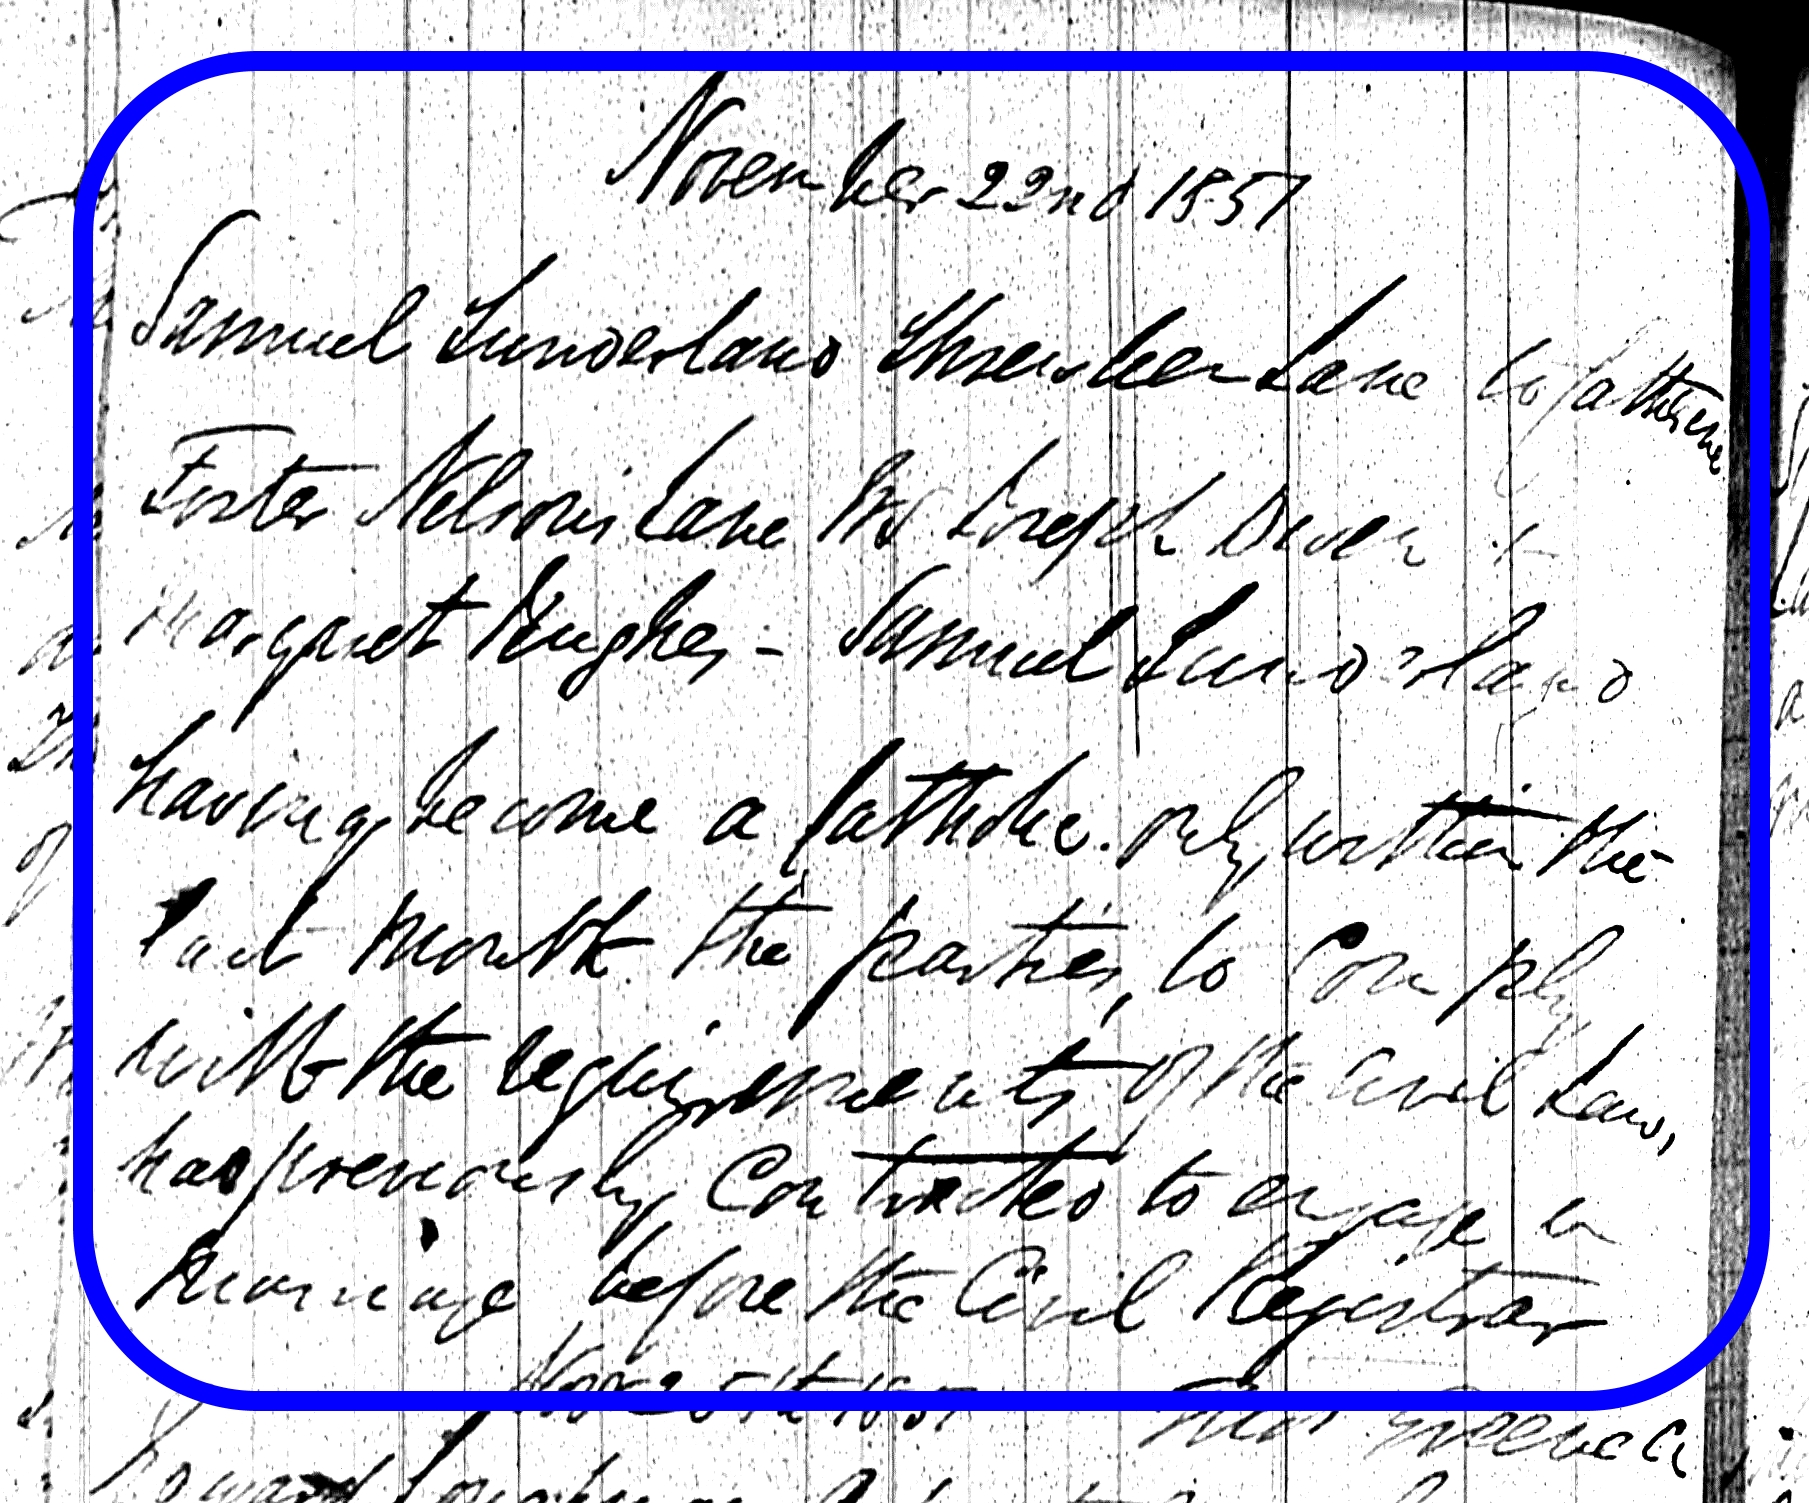 November 22nd 1857
Samuel Sunderland Shrewsber Lane to Catherine
Foster Nelson's Lane Joseph Diven &
Margaret Hughes - Samuel Sunderland
having become a Catholic only within the
last month the parties, to Comply
with the requirements of the Civil Law,
has previously Contracted to engage in
Marriage before the Civil Registrar
Nov 25th 1857
Edward